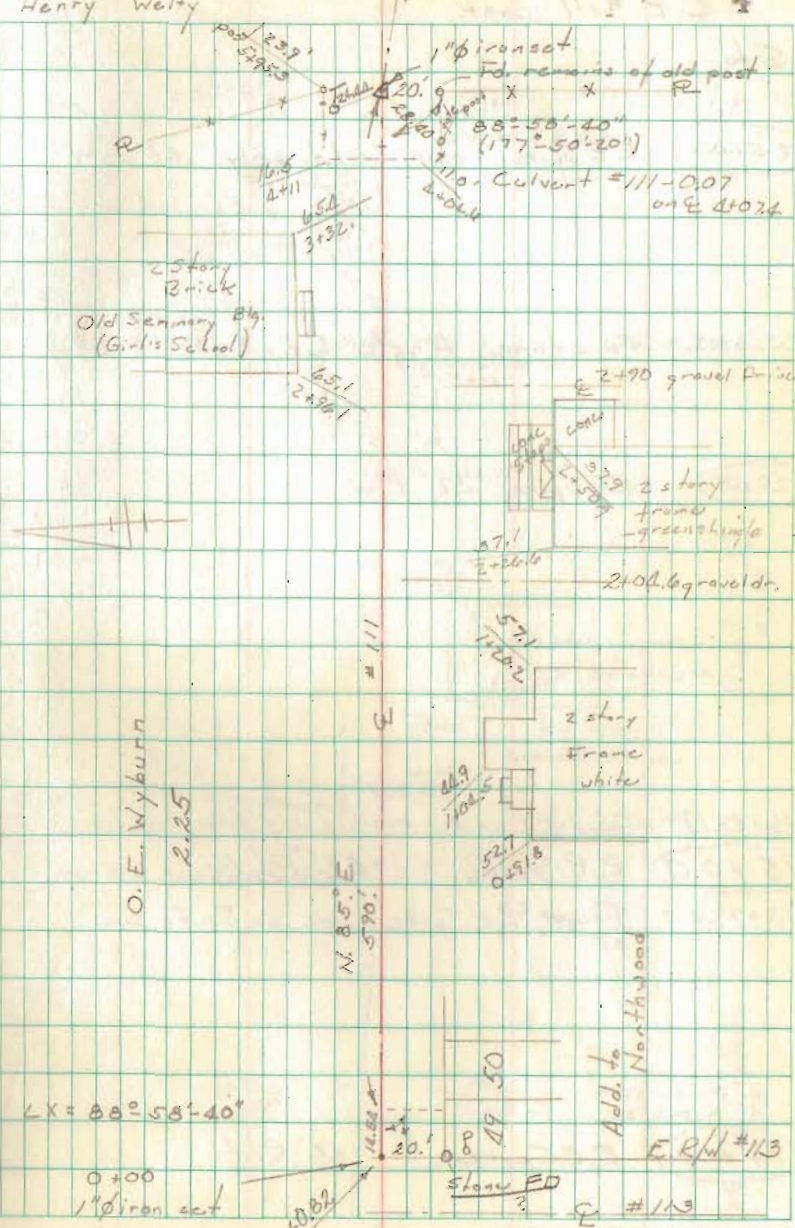 Henry Welty
1"Ø iron set
23.9'
post
Fd. remains of old post
20.'
88°-58'-40"
(177°-50'-20")
16.5
4+11
11.0
Culvert #111-0.07
on ℄ 4+07.4
65.4
3+32.
2 Story
Brick
Old Seminary Bldg.
(Girl's School)
65.1
2+96.1
℄ 2+90 gravel Drive
conc
conc
steps
37.9
2+50.9
2 story
frame
-greenshingle
37.1
2+26.6
2+04.6 gravel dr.
57.1
1+20.2
℄ #111
2 story
Frame
white
44.9
1+04.5
52.7
0+91.8
O. E. Wyburn
2.25
N. 85° E.
590.'
49 50
Add. to
Northwood
∠X = 88°-58'-40"
20.'
E. R/W #113
0+00
1"Ø iron set
Stone FD
?
℄ #113